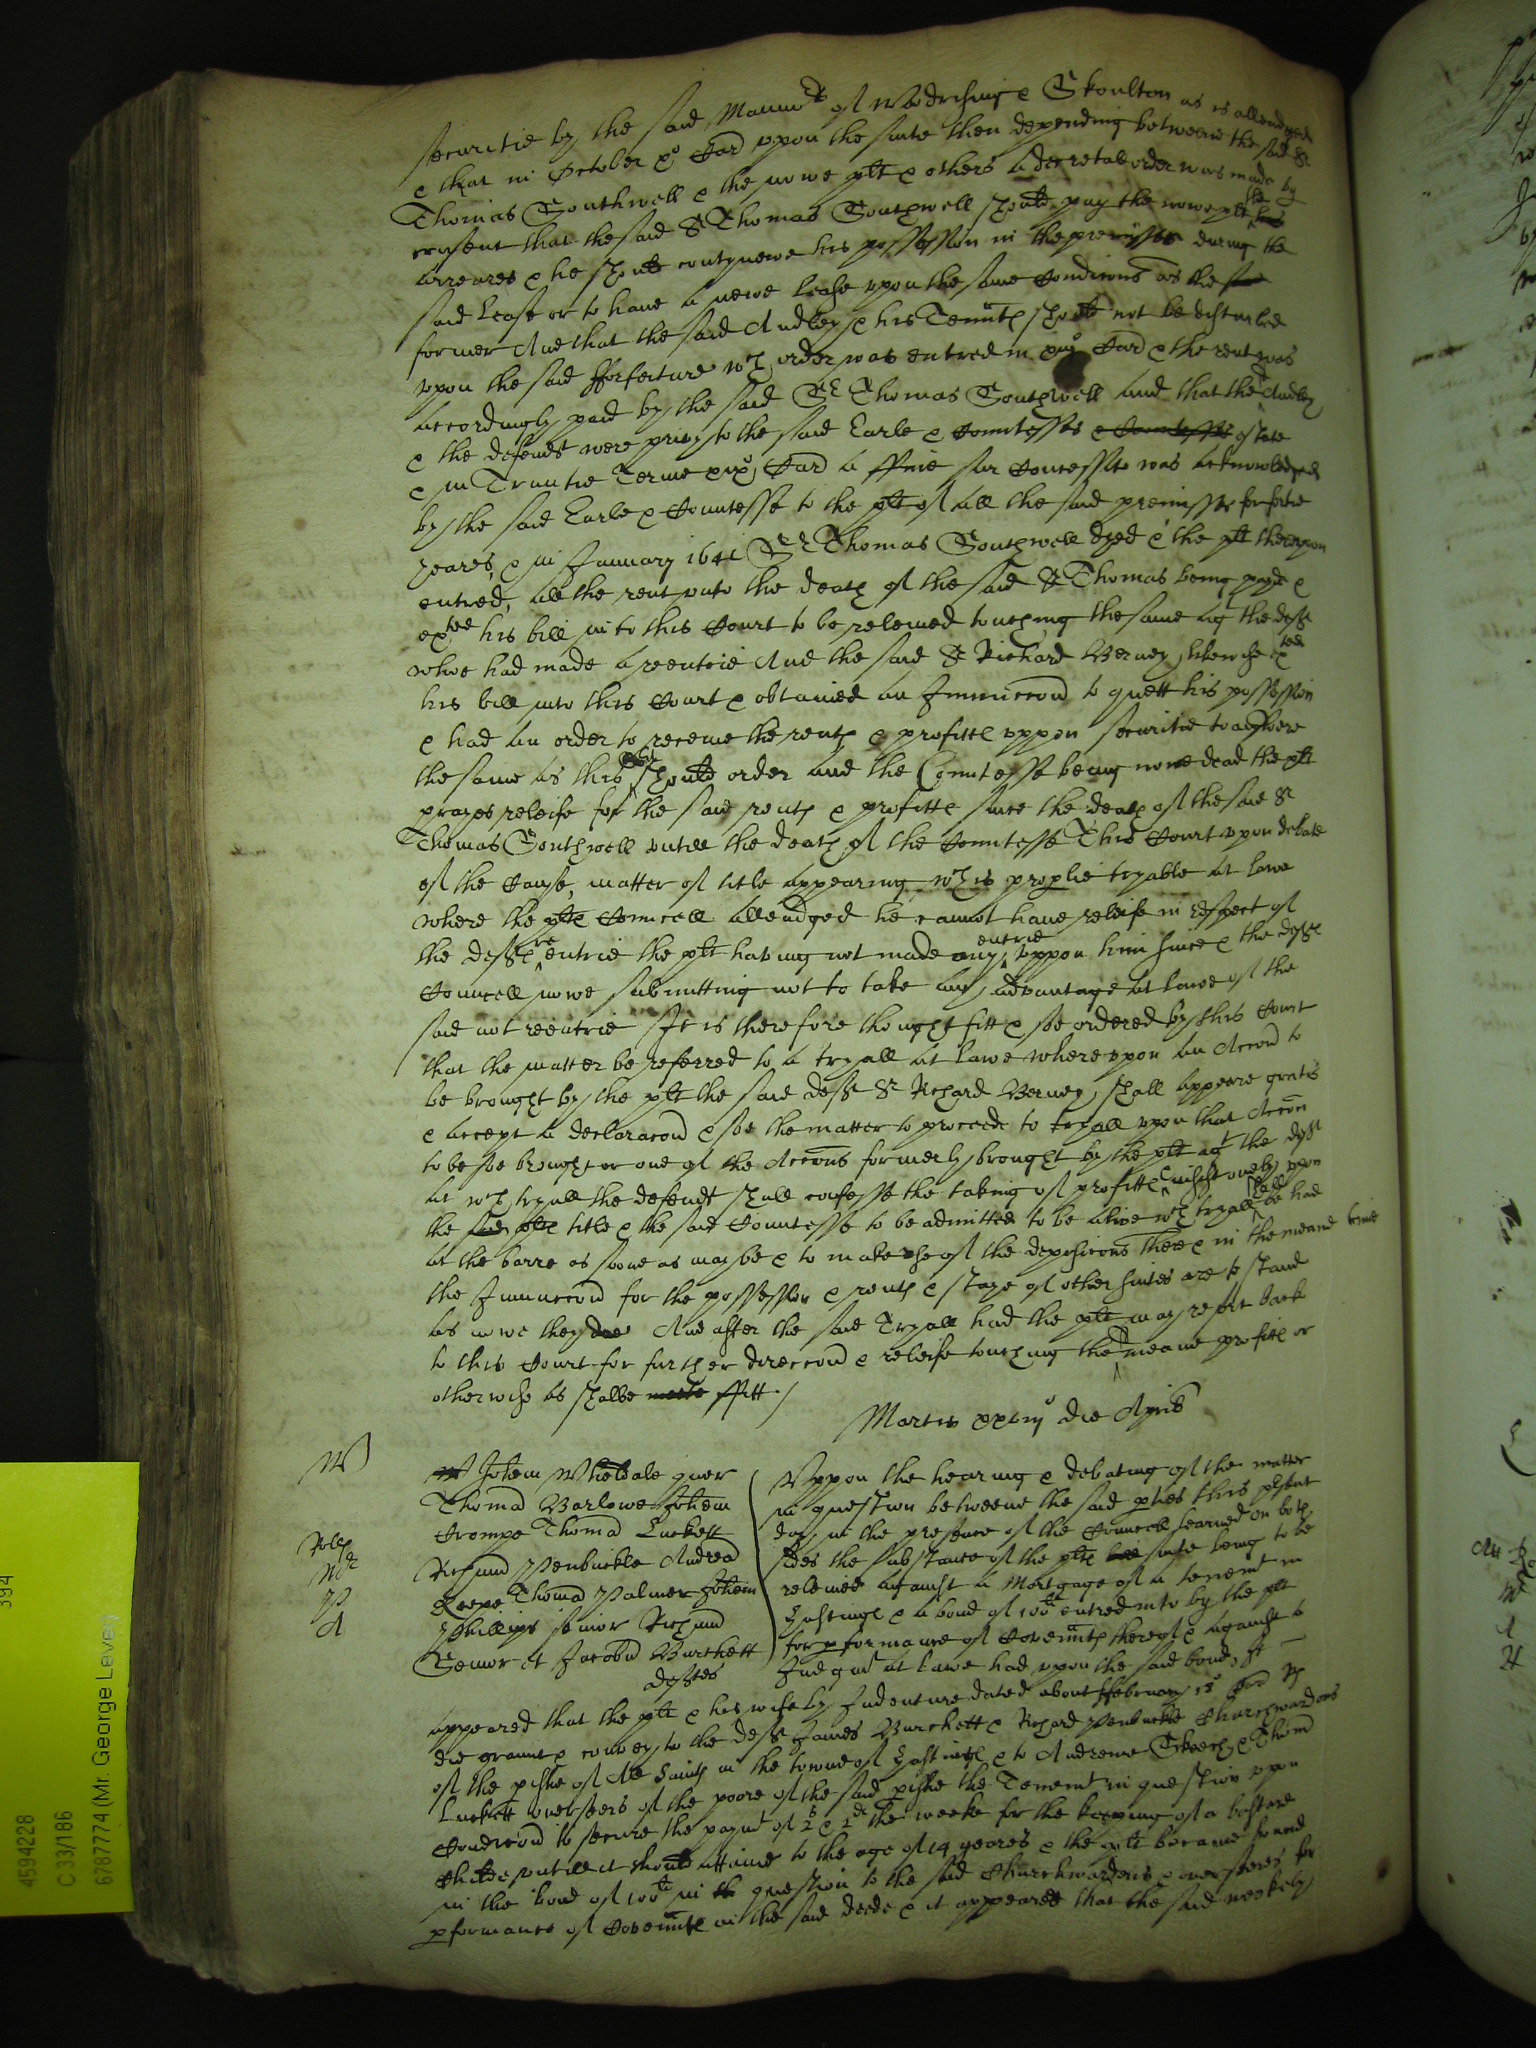 securitie by the said Mannors of Woodrising & Skoulton as is alleadged
& that in October xo Car upon the suite then depending betweene the said Sr
Thomas Southwell & the nowe plt & others a decretall order was made by
consent that the said Sr Thomas Southwell should pay the nowe plt the
arreares & he should contynewe his possession in the premisses during the
said Lease or to have a newe lease upon the same Condicons as the
former And that the said Audley & his Tennts should not be disturbed
upon the said fforfeiture wch order was entred in Car & the rent was
accordingly paid by the said Sr Thomas Southwell and that the Audley
& the defendt were privy to the said Earle & Countesses estate
& in Trinitie Terme Car a ffine sur Concessit was acknowledged
by the said Earle & Countesse to the plt of all the said premisses for fortie
yeares & in January 1641 Sr Thomas Southwell dyed & the plt thereupon
entred, all the rent unto the death of the said Sr Thomas being payd &
exted his bill into this Court to be releived touching the same agt the deft
whoe had made a reentrie And the said Sr Richard Berney likewise exted
his bill into this Court & obtained an Iniunccon to quett his possession
& had an order to receive the rents & profitts uppon securitie to answere
the same as this Court should order and the Countesse being nowe dead the plt
prayes releife for the said rents & profitts since the death of the said Sr
Thomas Southwell untill the death of the Countesse This Court upon debate
of the Cause, matter of title appearing, wch is properlie tryable at lawe
where the plts Councell alleadged he cannot have releife in respect of
the defts reentrie the plt having not made any entrie uppon him since & the defts
Councell nowe submitting not to take any advantage at lawe of the
said not reentrie It is therefore thought fitt & soe ordered by this Court
that the matter be referred to a tryall at lawe whereupon an Accon to
be brought by the plt the said deft Sr Richard Berney shall appeare gratis
& accept a declaracon & soe the matter to proceede to tryall upon that Accon
to be soe brought or one of the Accons formerly brought by the plt agt the deft
at wch tryall the defendt shall confesse the taking of profitts & insist onely upon
the title & the said Countesse to be admitted to be alive wch tryall shall be had
at the barre as soone as may be & to make use of the deposicons there & in the meane time
the Iniunccon for the possession & rents & staye of other suites are to stand
as nowe they doe And after the said Tryall had the plt may resort back
to this Court for further direccon & releife touching the meane profitts or
otherwise as shalbe ffitt./
Martis xxiiijo die Aprilis
W
Johem Wheldale quer
Thomam Barlowe Johem
Crompe Thomam Luckett
Richum Penbuckle Andream
Keepe Thomam Palmer Johem
Phillips senior Richum
Senior et Jacobum Burchett
deftes
P
A
Uppon the hearing & debating of the matter
in question betweene the said pties this psent
day in the presence of the Councell learned on both
sides the substance of the plts suite being to be
releived against a Mortgage of a tenemt in
Hastings & a bond of 100li entred into by the plt
for pformance of Covennts thereof & against a
Judgmt at lawe had upon the said bond, It
appeared that the plt & his wife by Indenture dated about ffebruary 15o Car Rs
did graunt & convey to the defts James Burchett & Richard Penbuckle Churchwardens
of the pishe of All Saints in the towne of Hastings & to Andrewe & Thoms
Luckett overseers of the poore of the said pishe the Tenemt in question upon
Condicon to secure the paymt of 2s & 2d the weeke for the keeping of a bastard
Childe untill it should attaine to the age of 14 yeares & the plt became bound
in the bond of 100li in question to the said Churchwardens & overseeres for
pformance of Covennts in the said deede & it appeared that the said weekely
394
4594228
C 33/186
6787774 (Mr. George Levey)